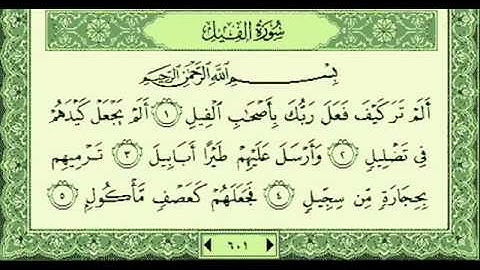 سُورَةُ الفِيلِ
بِسْمِ اللَّهِ الرَّحْمَٰنِ الرَّحِيمِ
أَلَمْ تَرَ كَيْفَ فَعَلَ رَبُّكَ بِأَصْحَابِ الْفِيلِ ١ أَلَمْ يَجْعَلْ كَيْدَهُمْ
فِي تَضْلِيلٍ ٢ وَأَرْسَلَ عَلَيْهِمْ طَيْرًا أَبَابِيلَ ٣ تَرْمِيهِم
بِحِجَارَةٍ مِّن سِجِّيلٍ ٤ فَجَعَلَهُمْ كَعَصْفٍ مَّأْكُولٍ ٥
٦٠١